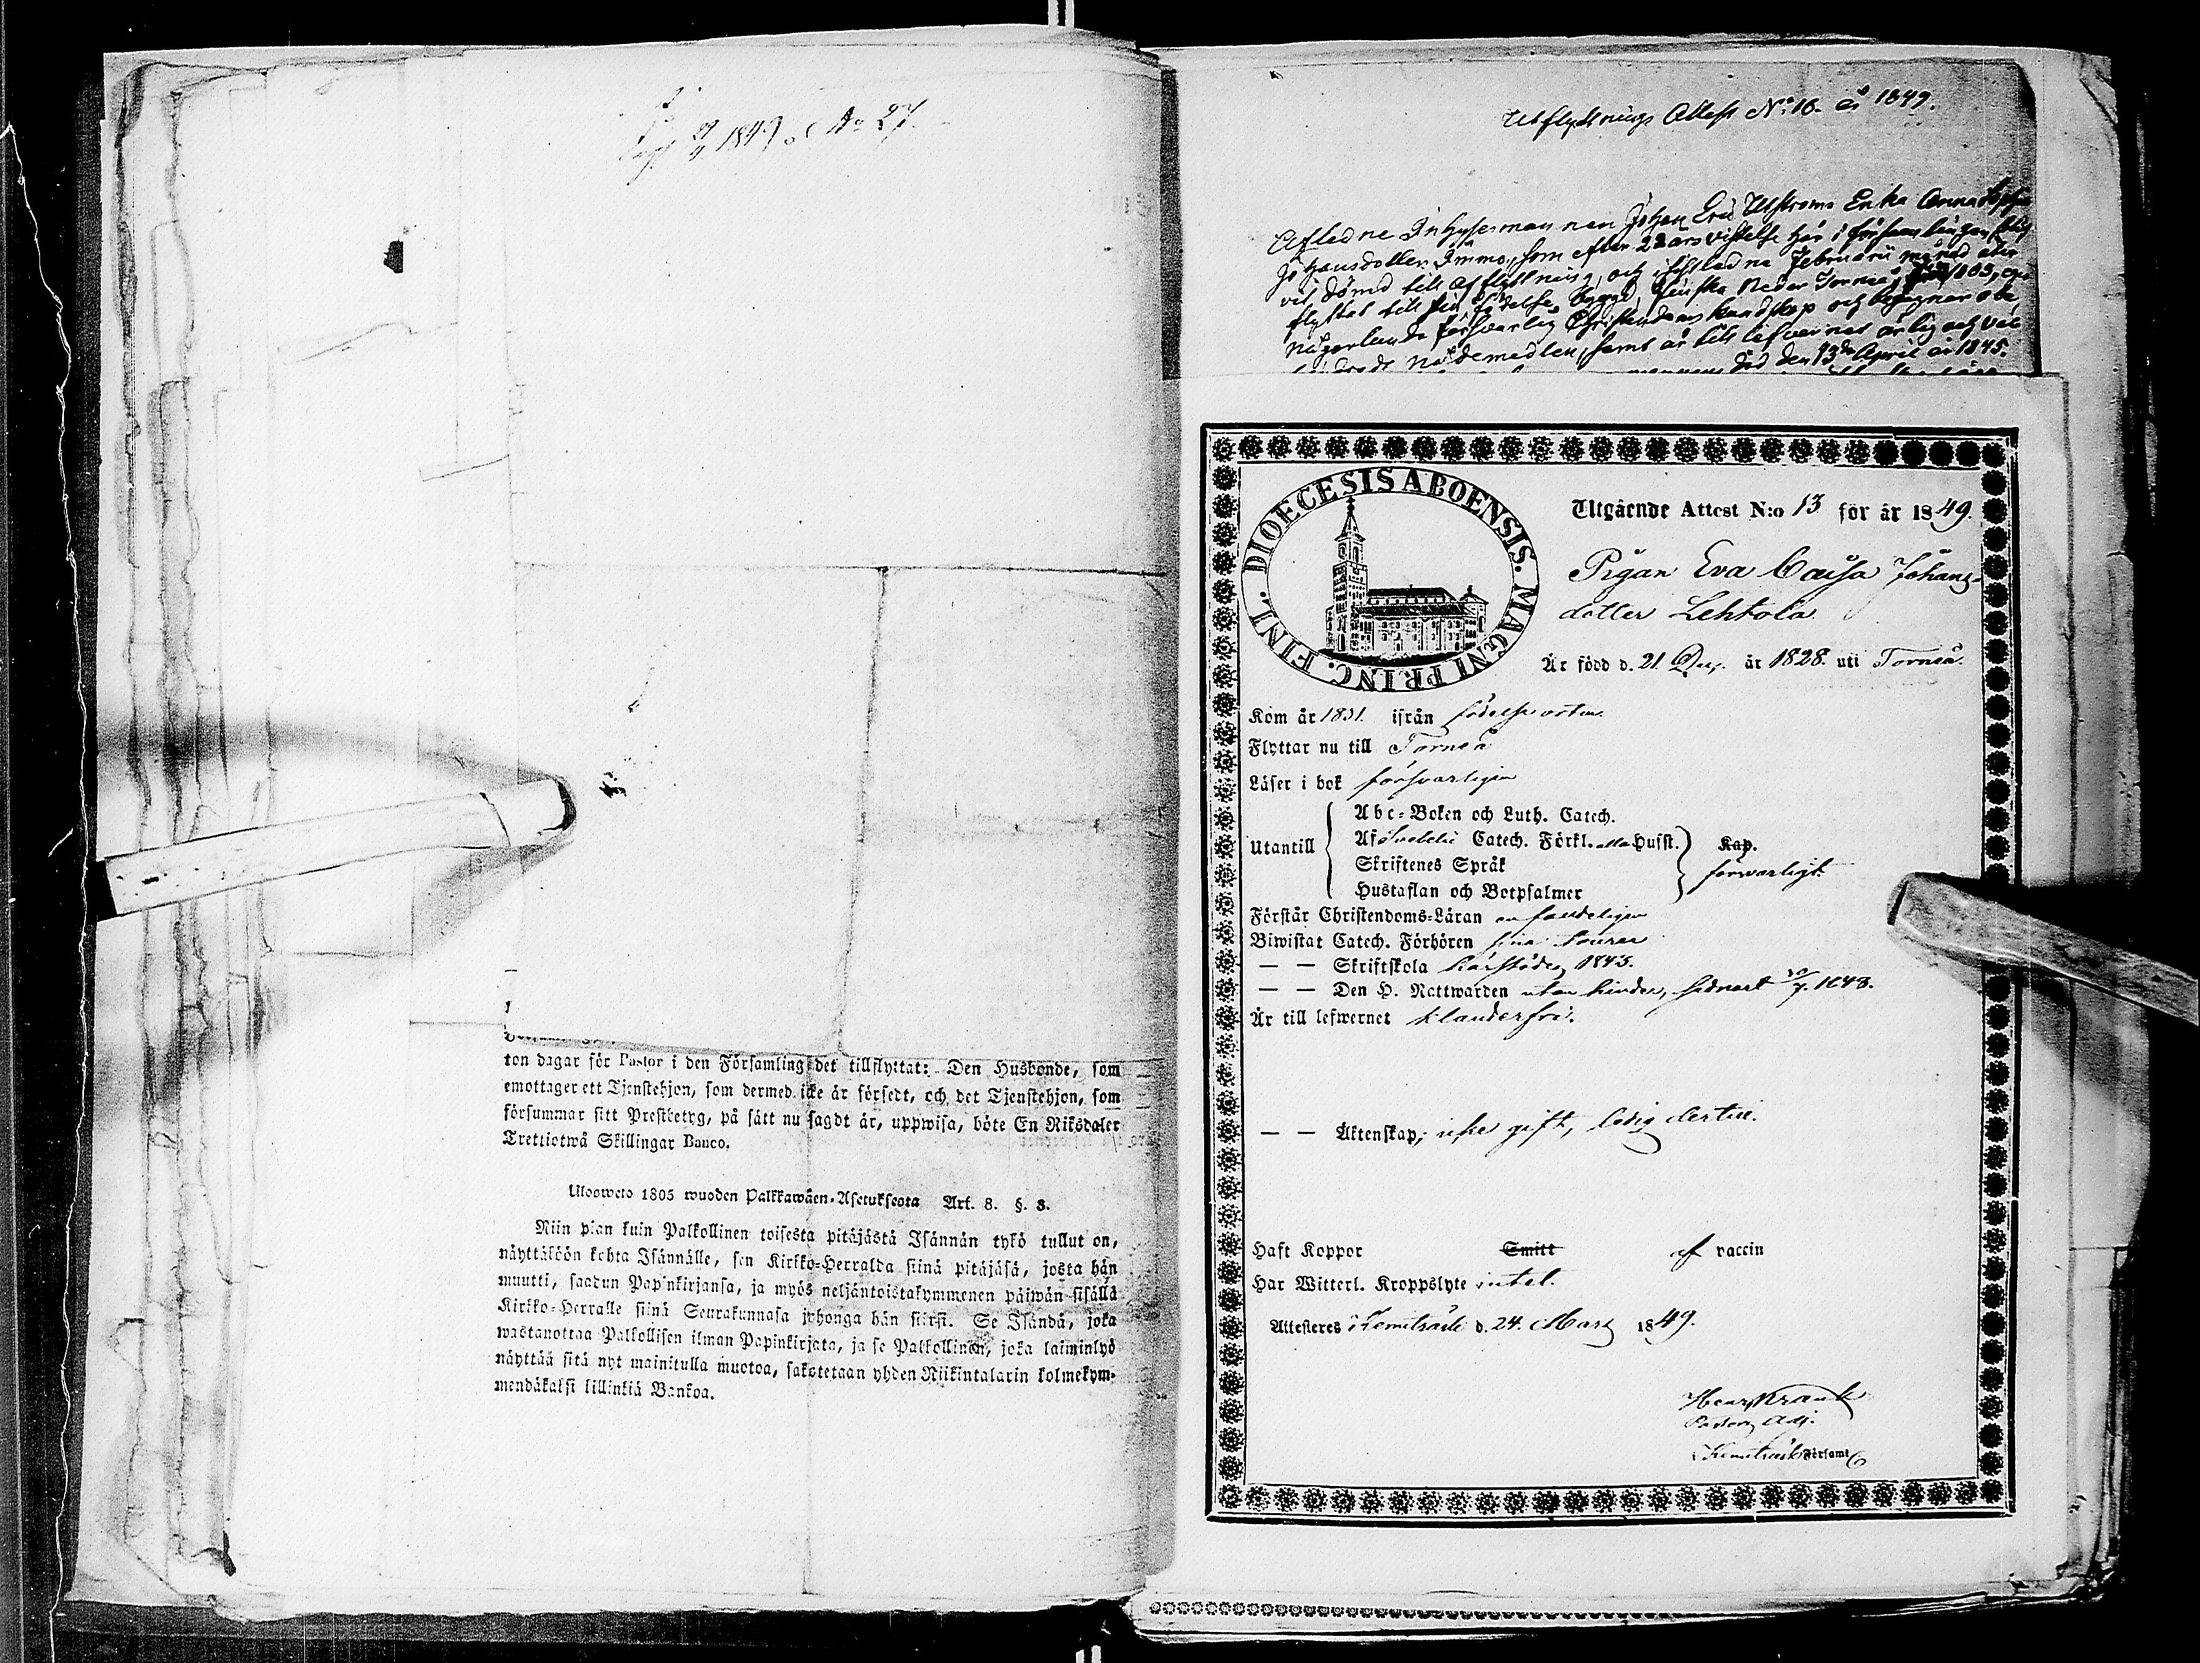 1849. No 27.
ton dagar för Pastor i den Församling det tillflyttat: Den Husbonde, som
emottager ett Tjenstehjon, som dermed icke är försedt, och det Tjenstehjon, som
försummar sitt Prestbetyg, på sätt nu sagdt är, uppwisa, böte En Riksdaler
Trettiotwå Skillingar Banco.
Uloosweto 1805 wuoden Palkkawäen-Asetuksesta Art. 8. §. 3.
Niin pian kuin Palkollinen toisesta pitäjästä Isännän tykö tullut on,
näyttäköön kohta Isännälle, sen Kirkko-Herralda siinä pitäjäsä, josta hän
muutti, saadun Papinkirjansa, ja myös neljäntoistakymmenen päiwän sisällä
Kirkko-Herralle siinä Seurakunnasa johonga hän siirsi. Se Isändä, joka
wastanottaa Palkollisen ilman Papinkirjata, ja se Palkollinen, joka laiminlyö
näyttää sitä nyt mainitulla muotoa, sakotetaan yhden Riikintalarin kolmekym-
mendäkaksi killinkiä Bankoa.
Utflyttnings Attest No: 16. år 1849.
Afledne Inhysesmannen Johan Eric Utströms Enka Anna Sophia
Johansdotter Immo, som efter 22 års vistelse här i församlingen blif
vit dömd till afflyttning, och i sistledne Februarii månad åter
flyttat till sin födelse bygd, Finska Neder Torneå, 1803, eger
någorlunda försvarlig Christendoms kundskap och begagnar obe
hindradt nådemedlen, samt är till lefvernet ärlig och väl
död den 13de April år 1845.
DIOECESIS ABOENSIS. MAGNI PRINC. FINL.
Utgående Attest N:o 13 för år 1849.
Pigan Eva Caisa Johans-
dotter Lehtola
Är född d. 21. Dec. år 1828. uti Torneå.
Kom år 1831. ifrån födelseorten.
Flyttar nu till Torneå
Läser i bok försvarligen
Utantill
Abc-Boken och Luth. Catech.
Af Svebelii Catech. Förkl. alla Hufst.
Skriftenes Språk
Hustaflan och Botpsalmer
Kap.
försvarligt.
Förstår Christendoms-Läran enfaldeligen
Biwistat Catech. Förhören sina
— — Skriftskola härstädes 1845.
— — Den H. Nattwarden utan hinder, sednast 30/7. 1848.
Är till lefwernet klanderfri.
— — Äktenskap, icke gift, ledig dertill.
Haft Koppor Smitt af vaccin
Har Witterl. Kroppslyte intet.
Attesteres Kemiträsk d. 24. Mars 1849.
Henr. Wrank
Pastors Adj.
i Kemiträsk Församl